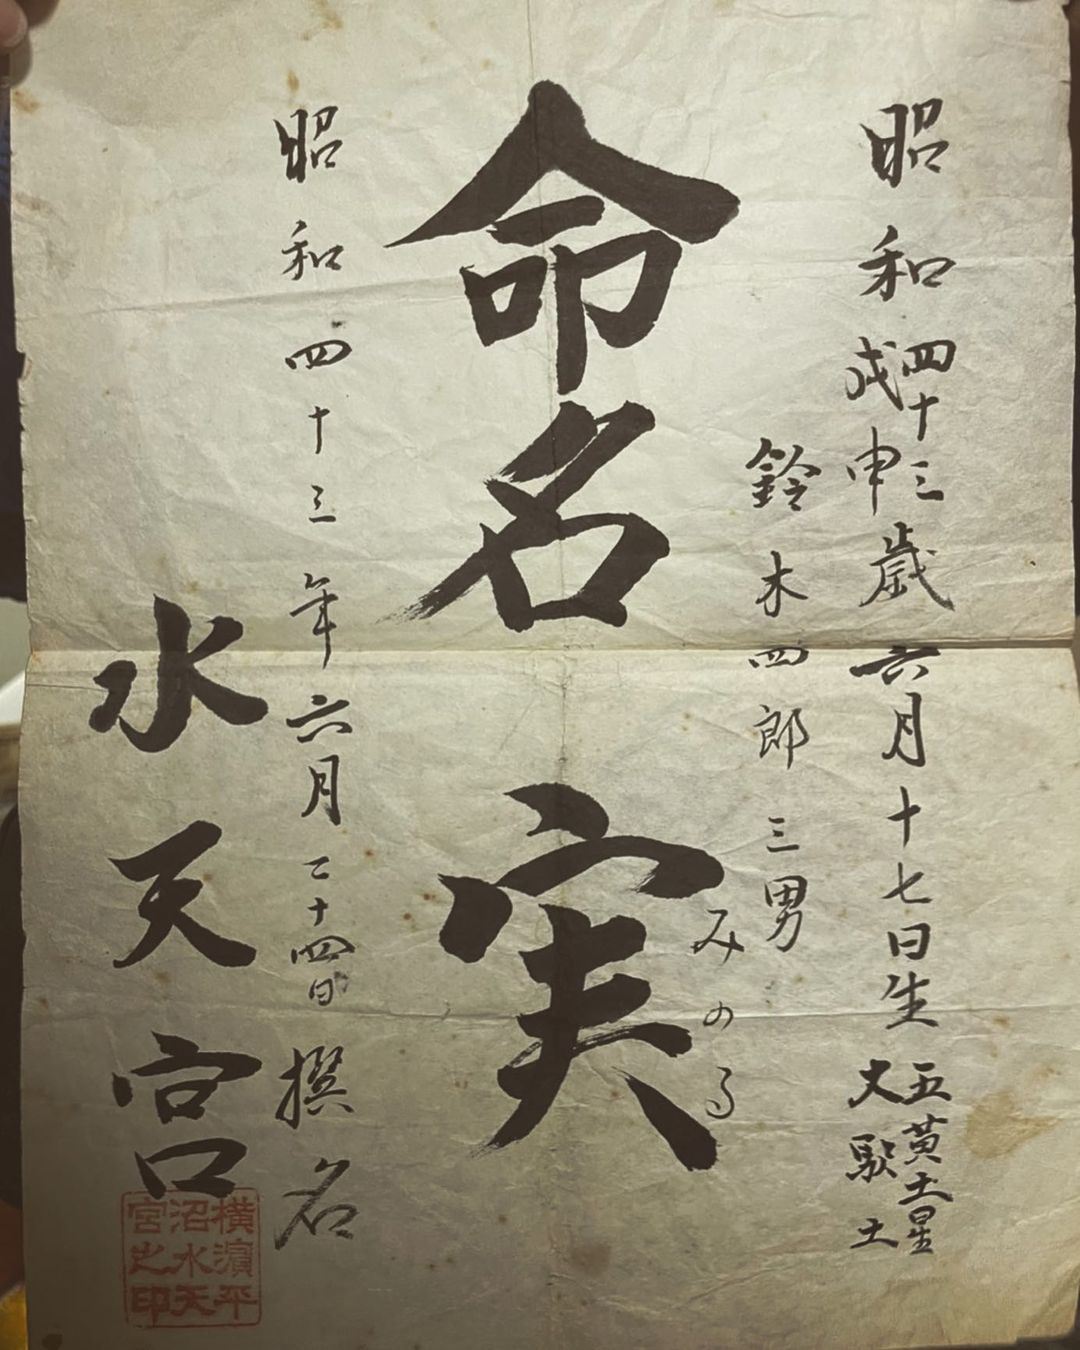 昭和四十三戊申歳六月十七日生五黄土星大駅土
鈴木四郎三男
命名実
みのる
昭和四十三年六月二十四日撰名
水天宮
横濱平
沼水天
宮之印